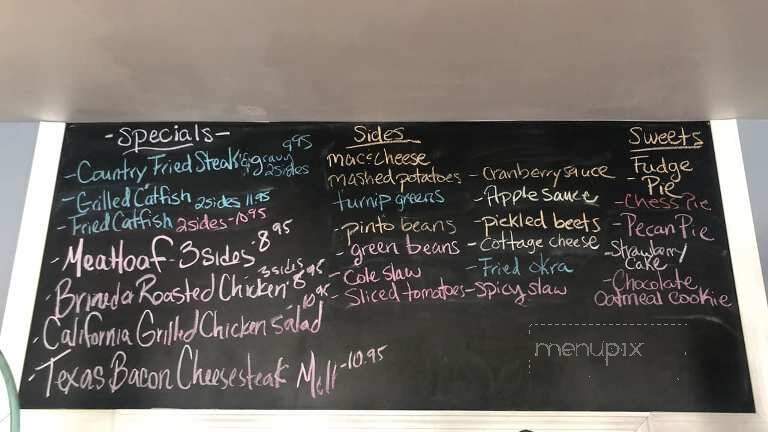 -Specials-
-Country Fried Steak & gravy 2sides 9.95
-Grilled Catfish 2sides 11.95
-Fried Catfish 2sides-10.95
-Meatloaf-3sides-8.95
-Roasted Chicken-3sides 8.95
-California Grilled Chicken Salad -10.95
-Texas Bacon Cheesesteak Melt-10.95
Sides
mac&cheese
mashed potatoes
turnip greens
-pinto beans
-green beans
-Cole slaw
-Sliced tomatoes
-Cranberry sauce
-Apple Sauce
-pickled beets
-Cottage cheese
-Fried okra
-Spicy slaw
Sweets
Fudge
-Pie
-Chess Pie
-Pecan Pie
-Strawberry
Cake
-Chocolate
Oatmeal Cookie
menupix